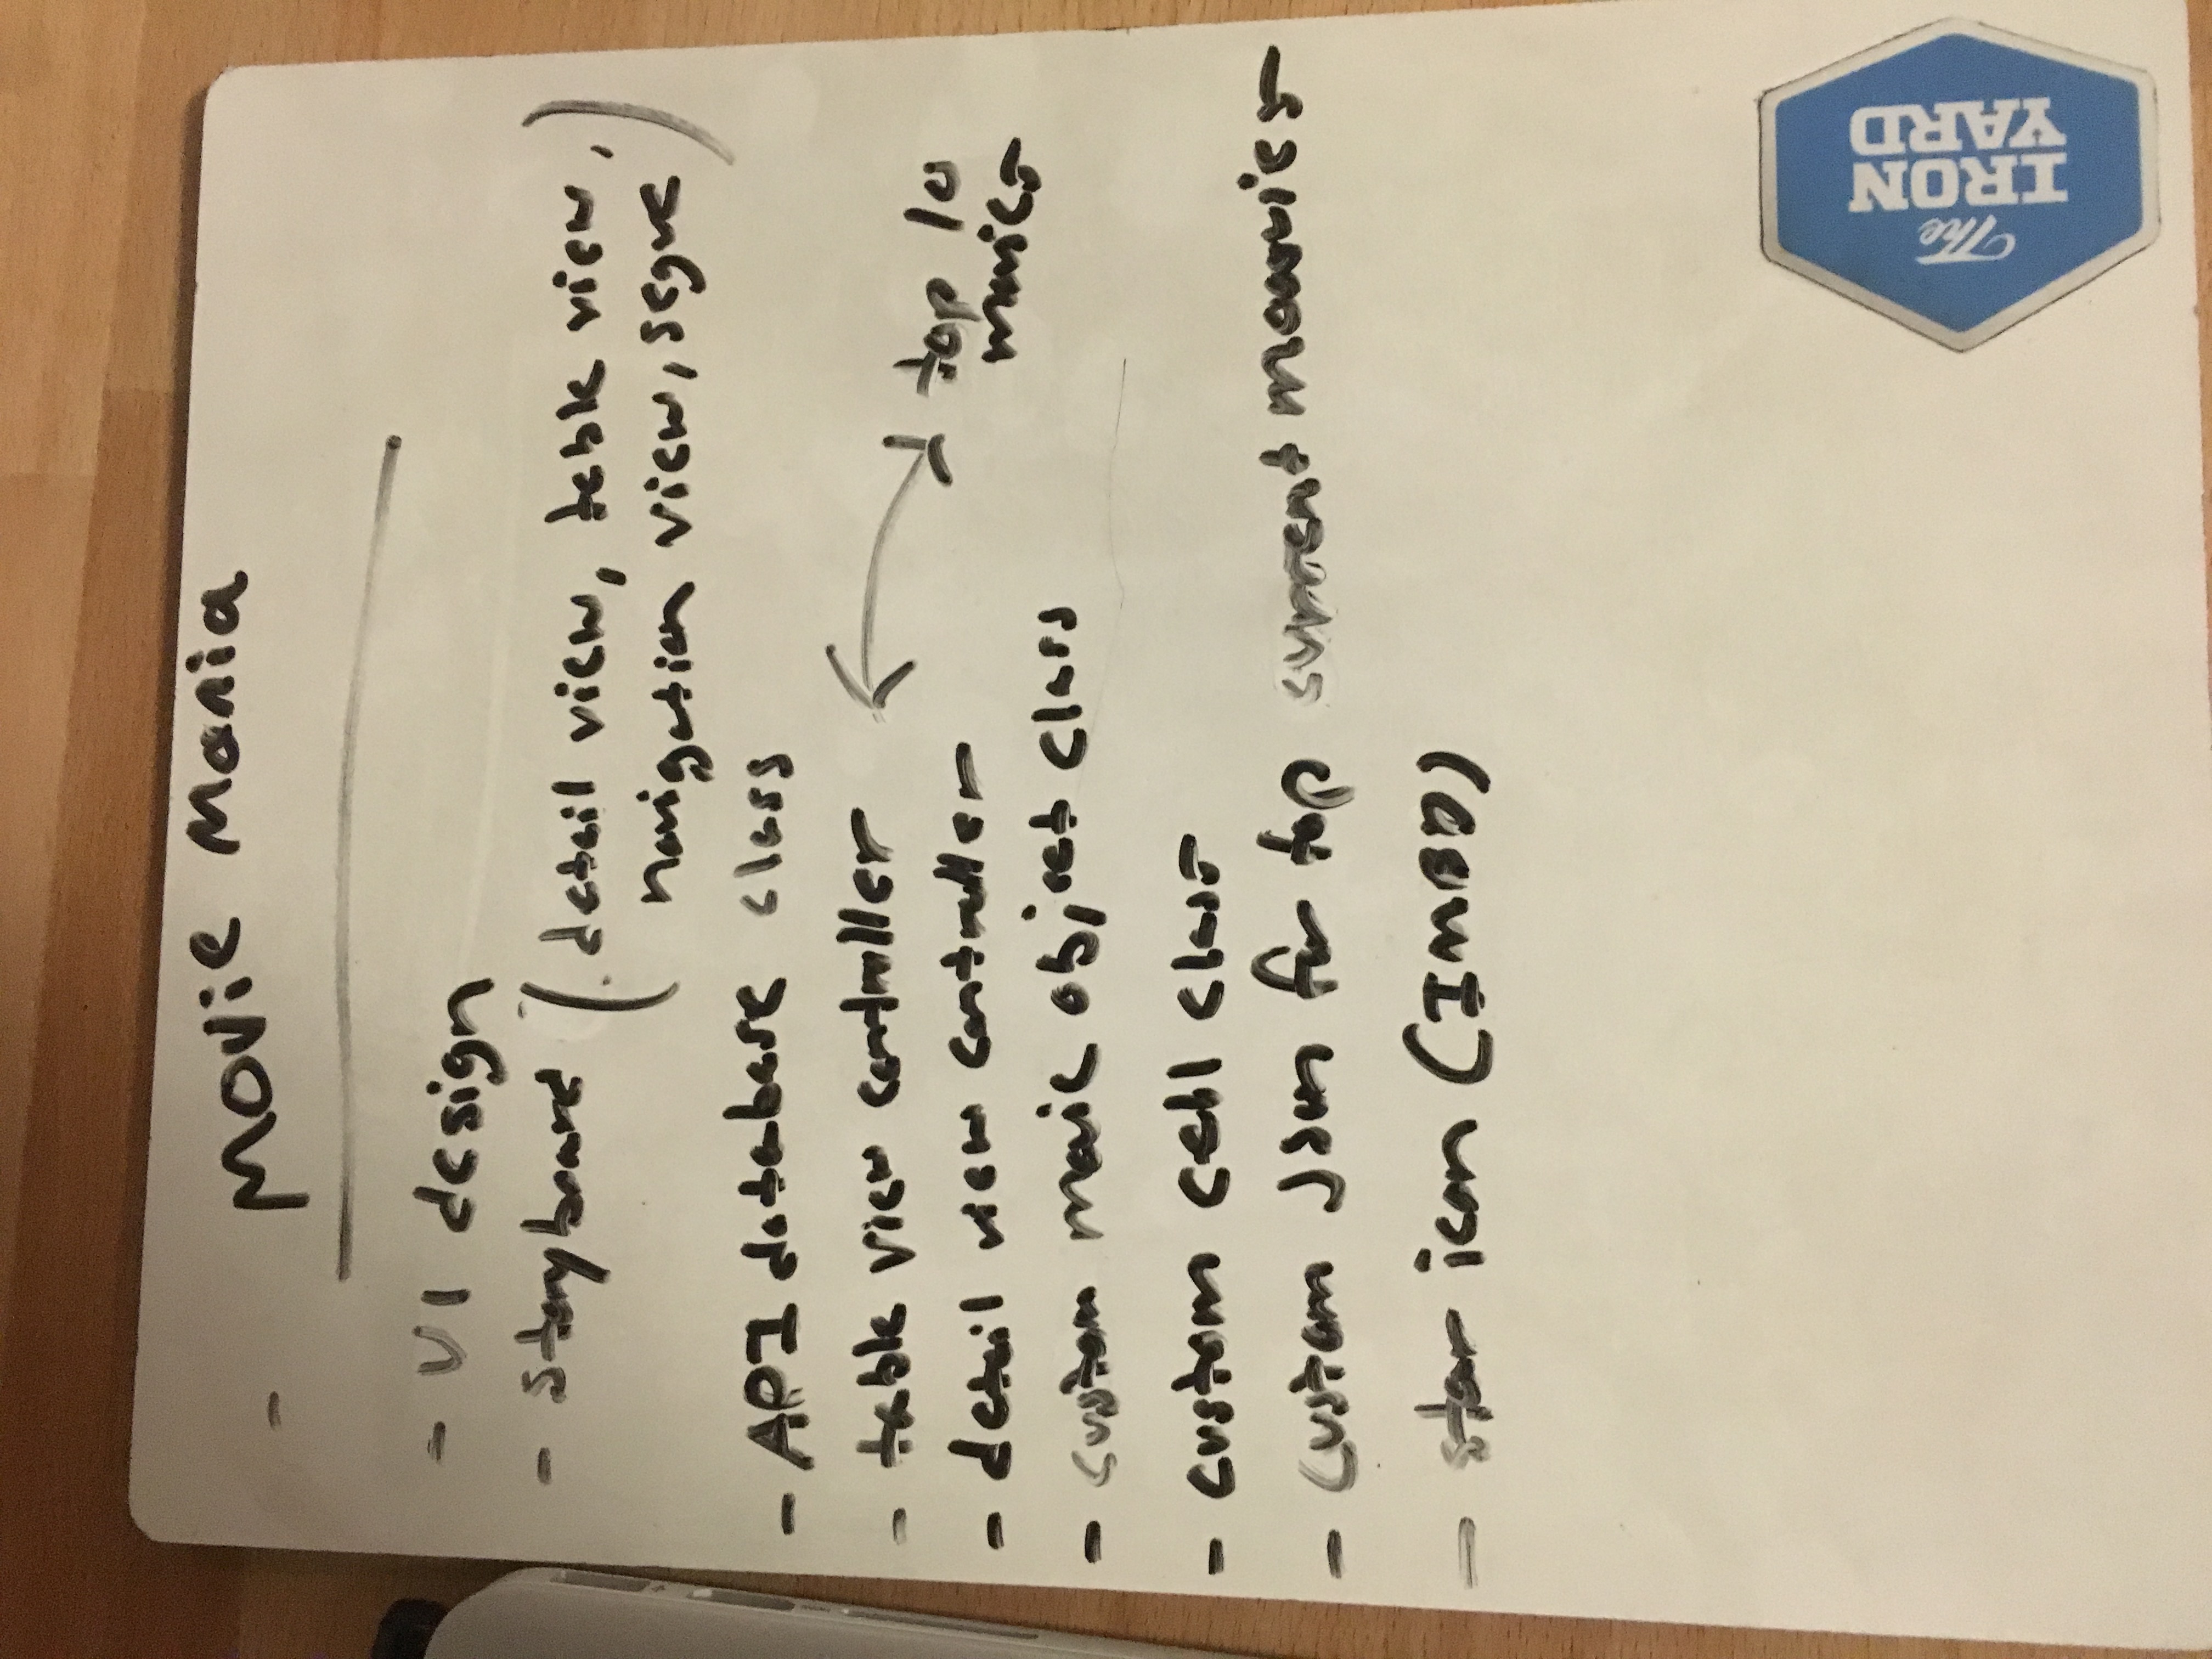 - Movie Mania
- UI design
- Storyboard (detail view, table view,
navigation view, segue)
- API database class
- table view controller
top 10
movies
- detail view controller
- custom movie object class
- custom cell class
- custom Json for top current moovies
- star icon (IMBD)
The
IRON
YARD